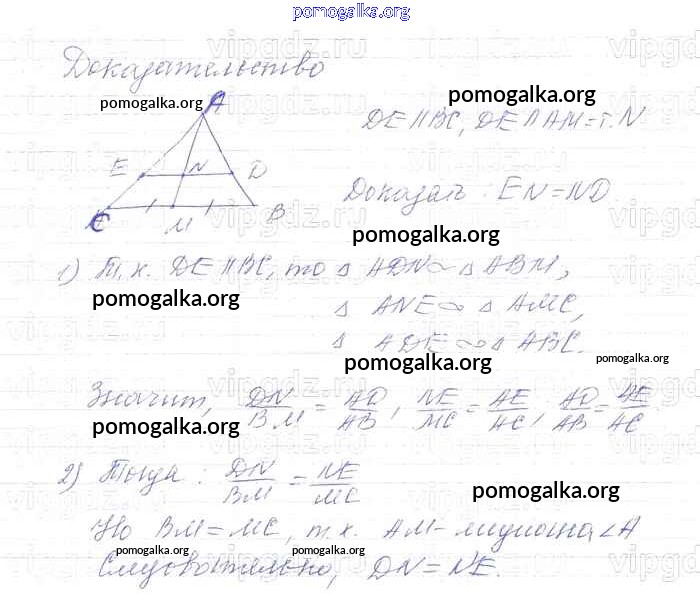 pomogalka.org
Доказательство
pomogalka.org
pomogalka.org
A
DE || BC, DE ∩ AM = т. N
E N D
Доказать: EN = ND.
C M B
pomogalka.org
1) Т.к. DE || BC, то △ ADN ∾ △ ABM,
pomogalka.org
△ ANE ∾ △ AMC,
△ ADE ∾ △ ABC.
pomogalka.org
pomogalka.org
Значит, DN/BM = AD/AB, NE/MC = AE/AC, AD/AB = AE/AC
pomogalka.org
2) Тогда: DN/BM = NE/MC
pomogalka.org
Но BM = MC, т.к. AM - медиана ∠A
pomogalka.org
pomogalka.org
Следовательно, DN = NE.
vipgdz.ru